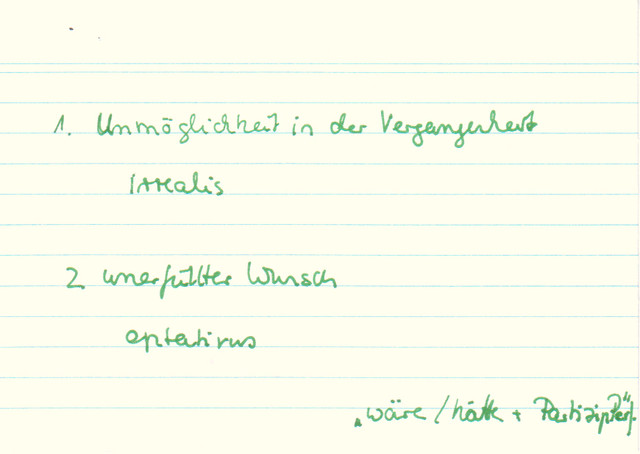 1. Unmöglichkeit in der Vergangenheit
Irrealis
2. unerfüllter Wunsch
optativus
„wäre / hätte + Partizip Perf."